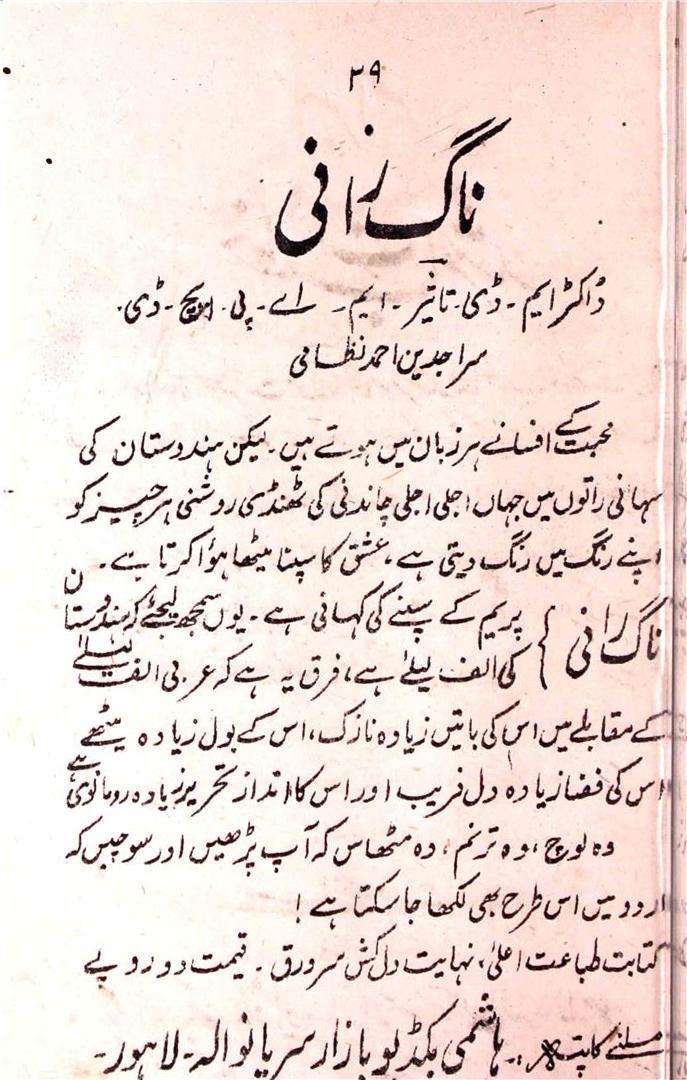 ۲۹
ناگ رانی
ڈاکٹر ایم۔ ڈی۔ تاثیر۔ ایم۔ اے۔ پی۔ ایچ۔ ڈی۔
سراجدین احمد نظامی
محبت کے افسانے ہر زبان میں ہوتے ہیں۔ لیکن ہندوستان کی
سہانی راتوں میں جہاں اجلی اجلی چاندنی کی ٹھنڈی روشنی ہر چیز کو
اپنے رنگ میں رنگ دیتی ہے، عشق کا سپنا میٹھا ہؤا کرتا ہے۔
ناگ رانی } پریم کے سپنے کی کہانی ہے۔ یوں سمجھ لیجئے کہ ہندوستان
کی الف لیلےٰ ہے، فرق یہ ہے کہ عربی الف لیلےٰ
کے مقابلے میں اس کی باتیں زیادہ نازک، اس کے بول زیادہ میٹھے
اس کی فضا زیادہ دل فریب اور اس کا انداز تحریر زیادہ رومانوی ہے
وہ لوچ، وہ ترنم، وہ مٹھاس کہ آپ پڑھیں اور سوچیں کہ
اردو میں اس طرح بھی لکھا جا سکتا ہے!
کتابت طباعت اعلیٰ، نہایت دل کش سرورق۔ قیمت دو روپے
ملنے کا پتہ :۔ ہاشمی بکڈپو بازار سریانوالہ۔ لاہور۔